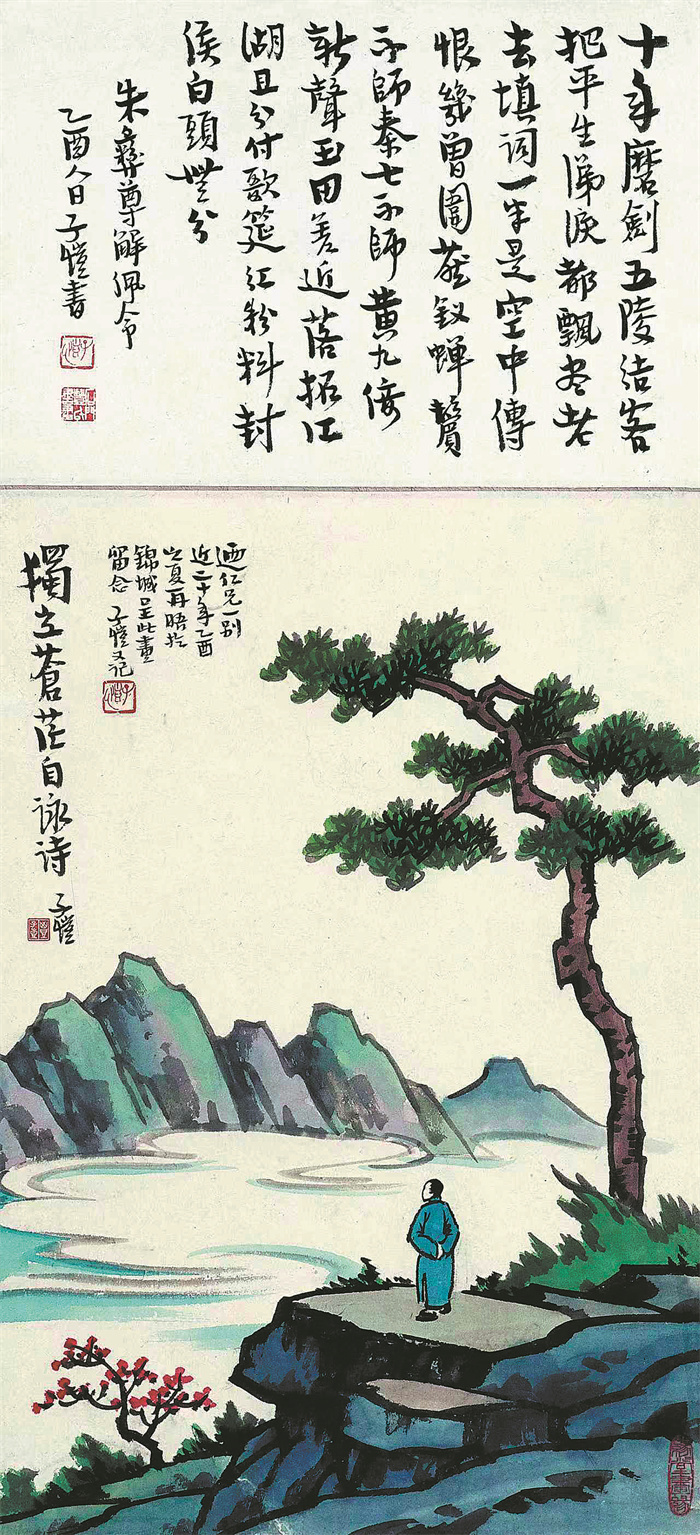 十年磨劍五陵结客
把平生涕淚都飄尽老
去填词一半是空中傳
恨幾曾圍燕釵蟬鬢
不師秦七不師黃九倚
新聲玉田差近落拓江
湖且分付歌筵红粉料封
侯白頭無分
朱彝尊解佩令
乙酉人日子愷書
獨立蒼茫自詠诗
子愷
仁兄一别
近二十年乙酉
之夏再晤於
錦城呈此畫
留念 子愷又记